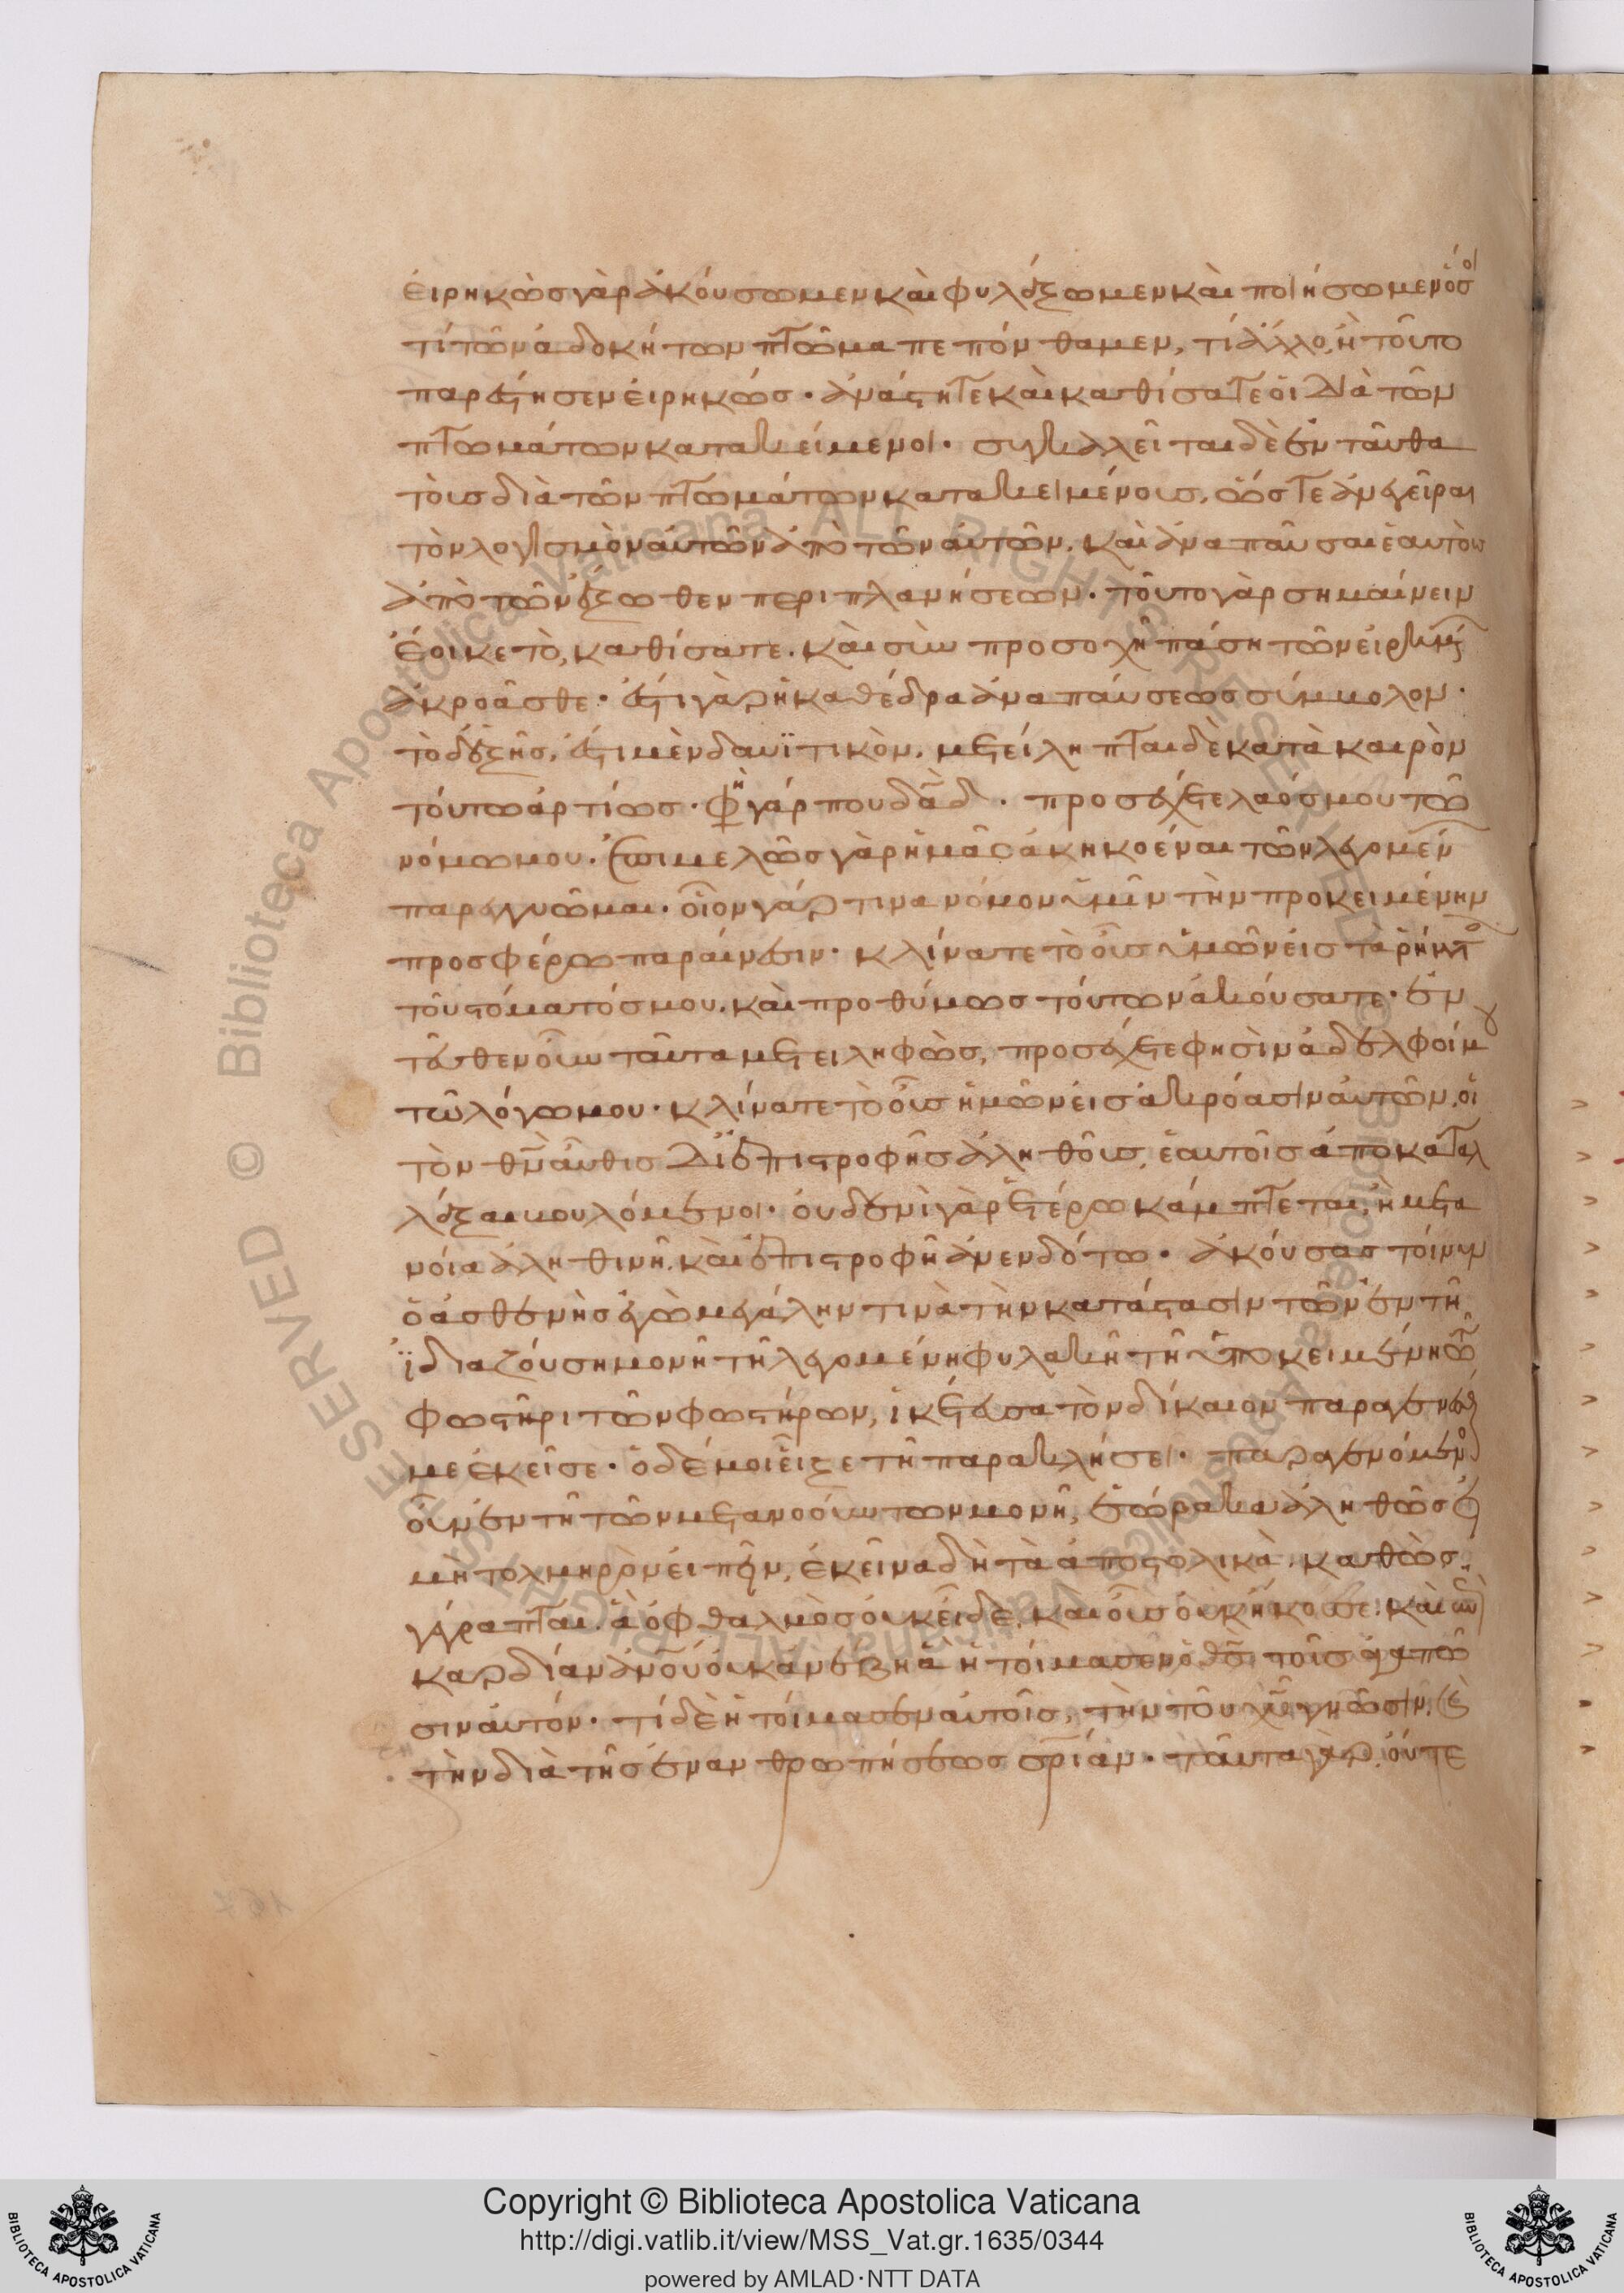 εἰρηκὼς γὰρ ἀκούσωμεν καὶ φυλάξωμεν καὶ ποιήσωμεν ὅσοι
τί τῶν ἀδοκήτων πτῶμα πεπόνθαμεν, τί ἄλλο, ἢ τοῦτο
παρέστησεν εἰρηκώς· ἀνάστητε καὶ καθίσατε οἱ διὰ τῶν
πτωμάτων κατακείμενοι· συγκαλεῖται δὲ ἐνταῦθα
τοὺς διὰ τῶν πτωμάτων κατακειμένους, ὥστε ἀνεγεῖραι
τὸν λογισμὸν αὐτῶν ἀπὸ τῶν αὐτῶν. καὶ ἀναπαῦσαι ἑαυτοὺς
ἀπὸ τῶν ἔξωθεν περιπλανήσεων· τοῦτο γὰρ σημαίνειν
ἔοικε τὸ, καθίσατε. καὶ σὺν προσοχῆ πάση τῶν εἰρημένων
ἀκροᾶσθε· ἔστι γὰρ ἡ καθέδρα ἀναπαύσεως σύμβολον·
τὸ δὲ ἑξῆς, ἔστι μὲν δαυϊτικὸν. μετείληπται δὲ κατὰ καιρὸν
τούτω ἀρτίως· φη γάρ που δαδ· προσέχετε λαός μου τῶ
νόμω μου· ἐπιμελῶς γὰρ ἡμᾶς ἀκηκοέναι τῶν λεγομένων
παρεγγυῶμαι· οἷον γάρ τινα νόμον ὑμῖν τὴν προκειμένην
προσφέρω παραίνεσιν· κλίνατε τὸ οὖς ὑμῶν εἰς τὰ ῥήματα
τοῦ στόματός μου. καὶ προθύμως τούτων ἀκούσατε· ἐν
τεῦθεν οὖν ταῦτα μετειληφὼς, προσέχετε φησὶν ἀδελφοί μου
τῶ λόγω μου· κλίνατε τὸ οὖς ἡμῶν εἰς ἀκρόασιν αὐτῶν. οἱ
τὸν θν αὖθις δι' ἐπιστροφῆς ἀληθοῦς, ἑαυτοῖς ἀποκαταλ
λάξαι βουλόμενοι· οὐδενὶ γὰρ ἑτέρω κάμπτεται, ἢ μετα
νοία ἀληθινῆ. καὶ ἐπιστροφῆ ἀνενδότω· ἀκούσας τοίνυν
ὁ ἀσθενὴς ἐγὼ μεγάλην τινὰ τὴν κατάστασιν τῶν ἐν τῆ
ἰδιαζούση μονῆ τῆ λεγομένη φυλακῆ τῆ ὑποκειμένη τῶ
φωστῆρι τῶν φωστήρων, ἱκέτευσα τὸν δίκαιον παραγενέσθαι
με ἐκεῖσε· ὁ δέ μοι εἶξε τῆ παρακλήσει· παραγενόμενος
οὖν ἐν τῆ τῶν μετανοούντων μονῆ, ἑώρακα ἀληθῶς εἰ
μὴ τολμηρὸν εἰπεῖν, ἐκεῖνα δὴ τὰ ἀποστολικὰ. καθὼς
γέγραπται. ἃ ὀφθαλμὸς οὐκ εἶδε. καὶ οὖς οὐκ ἤκουσε. καὶ ἐπὶ
καρδίαν ἀνου οὐκ ἀνέβη ἃ ἡτοίμασεν ὁ θς τοῖς ἀγαπῶ
σιν αὐτόν· τί δὲ ἡτοίμασεν αὐτοῖς, τὴν τοῦ χυ γνῶσιν. καὶ
τὴν διὰ τῆς ἐνανθρωπήσεως σριαν· ταῦτα γὰρ, οὔτε
Copyright © Biblioteca Apostolica Vaticana
http://digi.vatlib.it/view/MSS_Vat.gr.1635/0344
powered by AMLAD·NTT DATA